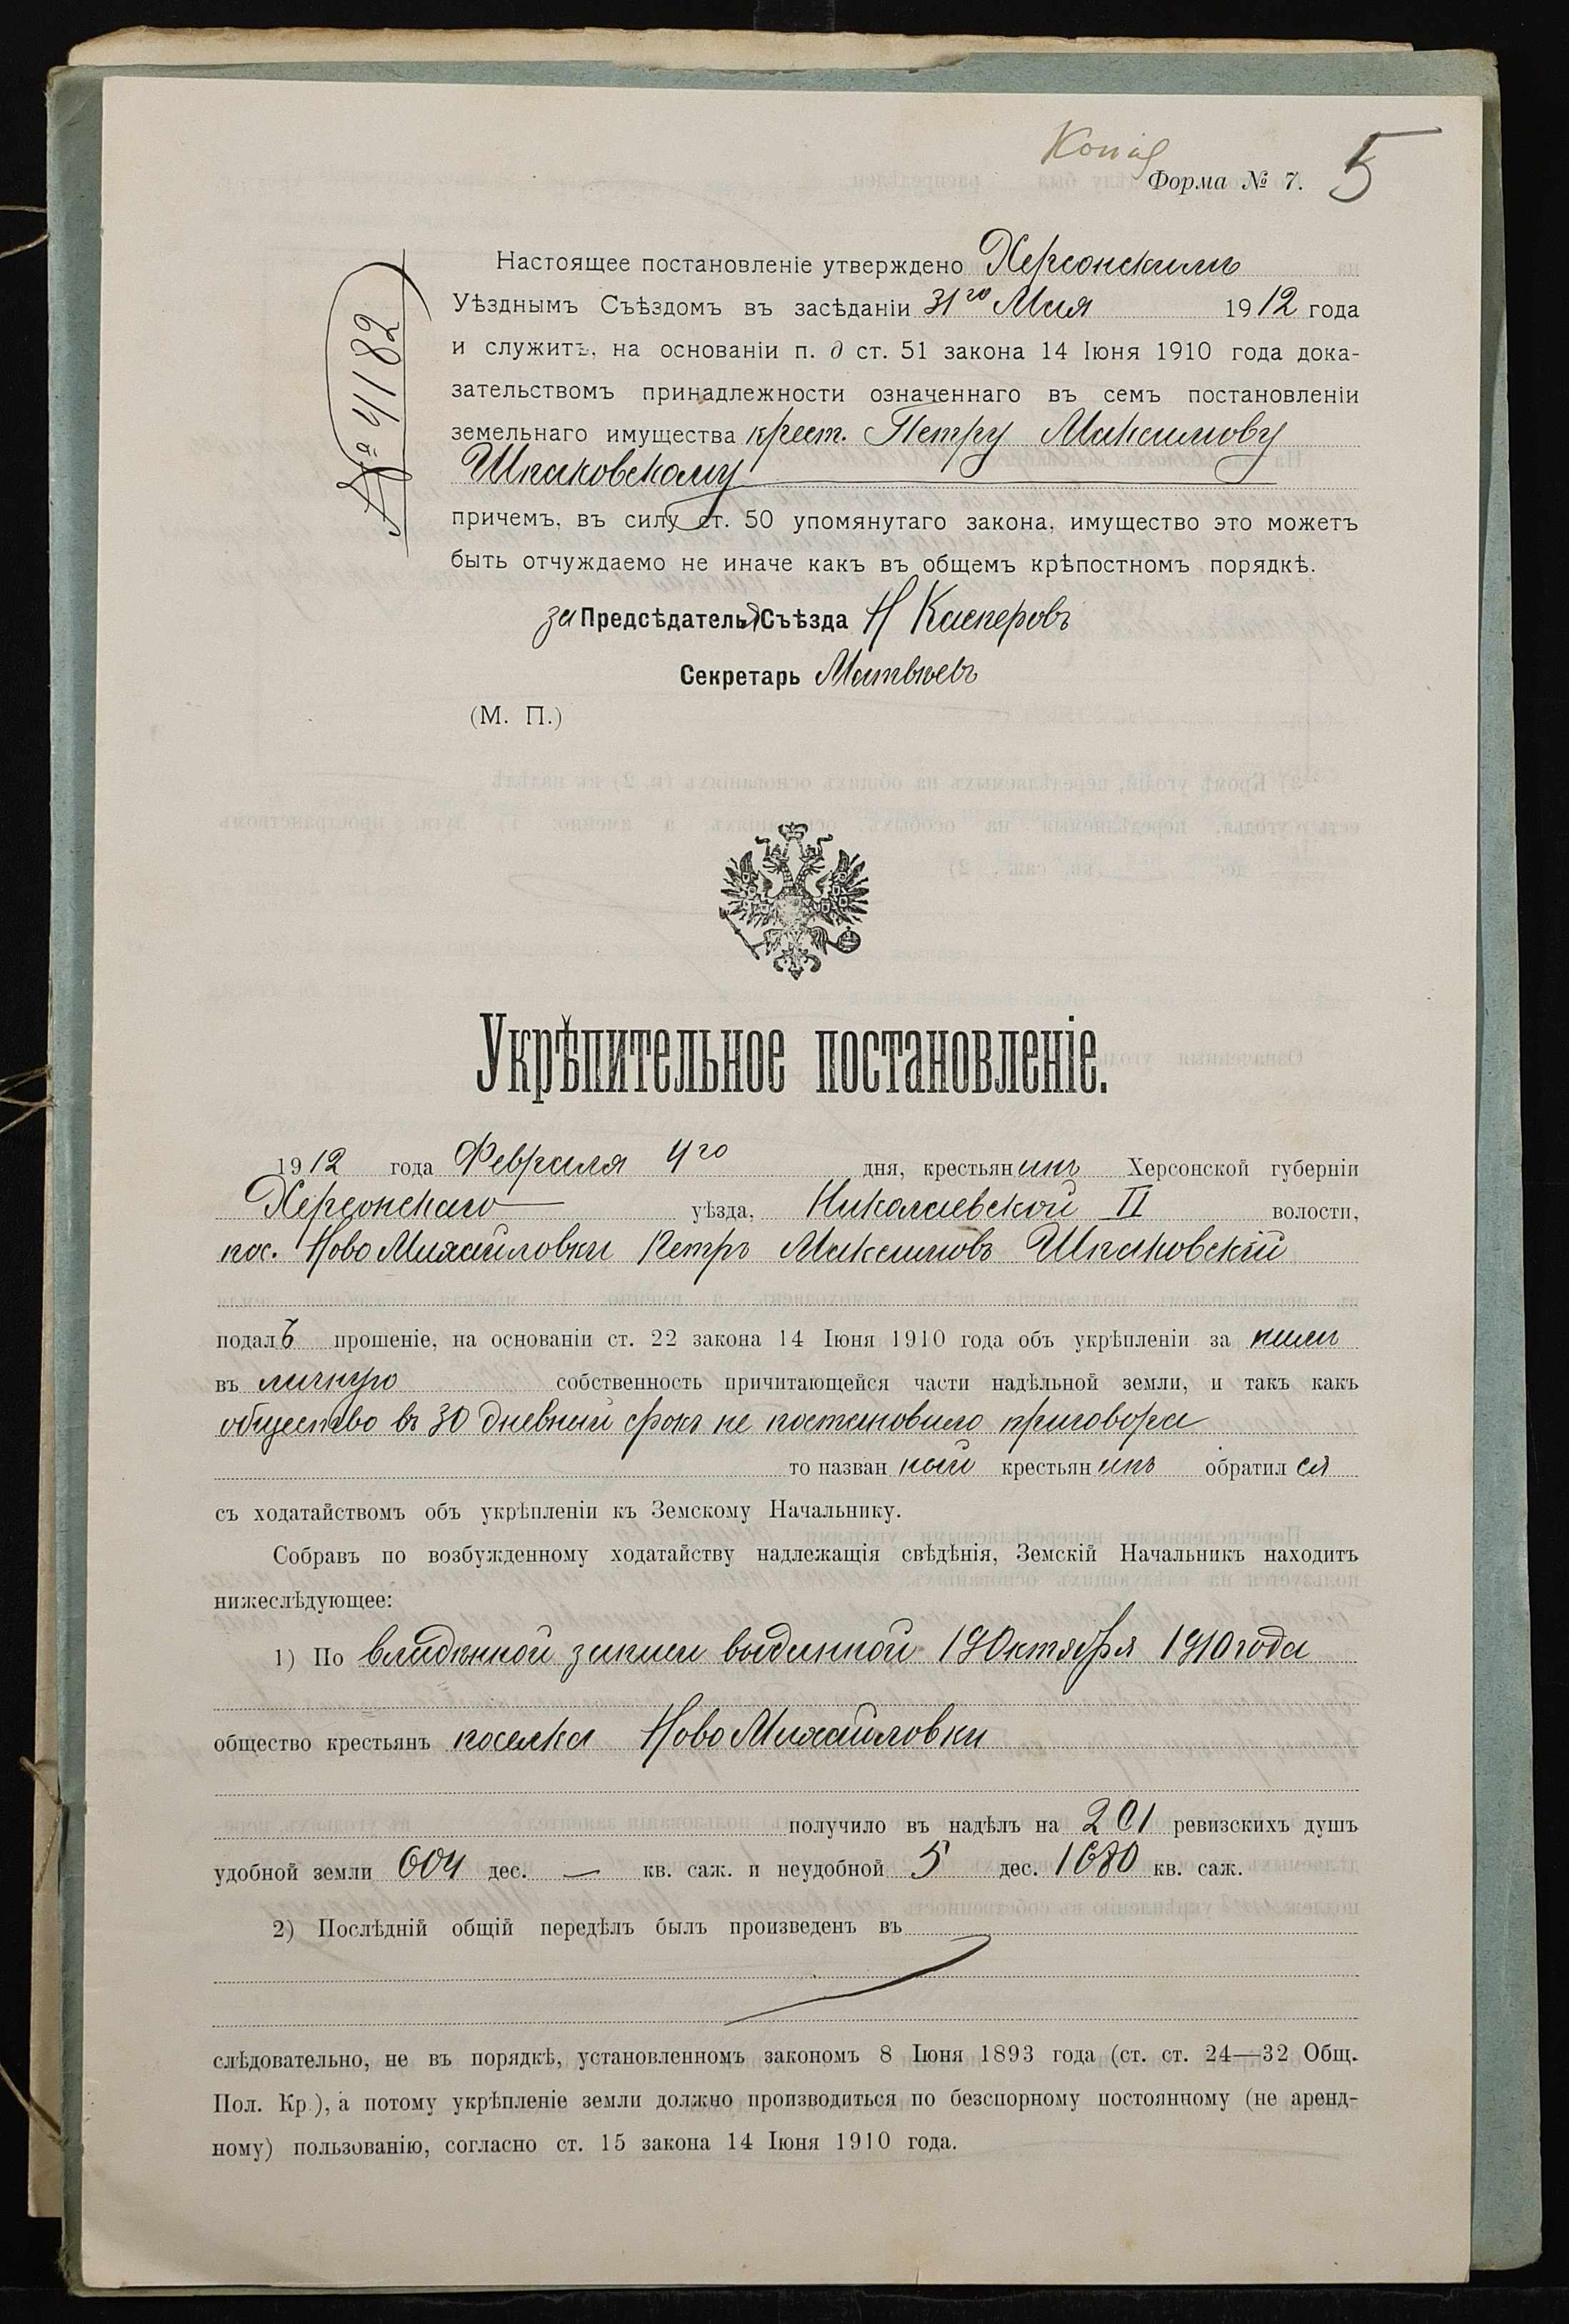 Копія
Форма № 7. 5
№ 4182
Настоящее постановленіе утверждено Херсонскимъ
Уѣзднымъ Съѣздомъ въ засѣданіи 31го Мая 1912 года
и служитъ, на основаніи п. д ст. 51 закона 14 Іюня 1910 года дока-
зательствомъ принадлежности означеннаго въ семъ постановленіи
земельнаго имущества крест. Петру Максимову
Шпаковскому
причемъ, въ силу ст. 50 упомянутаго закона, имущество это можетъ
быть отчуждаемо не иначе какъ въ общемъ крѣпостномъ порядкѣ.
за Предсѣдателя Съѣзда Н Касперовъ
Секретарь Матвѣевъ
(М. П.)
Укрѣпительное постановленіе.
1912 года Февраля 4го дня, крестьянинъ Херсонской губерніи
Херсонскаго уѣзда, Николаевской II волости,
пос. Ново Михайловки Петръ Максимовъ Шпаковскій
подалъ прошеніе, на основаніи ст. 22 закона 14 Іюня 1910 года объ укрѣпленіи за нимъ
въ личную собственность причитающейся части надѣльной земли, и такъ какъ
общество въ 30 дневный срокъ не постановило приговора
то названный крестьянинъ обратился
съ ходатайствомъ объ укрѣпленіи къ Земскому Начальнику.
Собравъ по возбужденному ходатайству надлежащія свѣдѣнія, Земскій Начальникъ находитъ
нижеслѣдующее:
1) По владѣнной записи выданной 19 Октября 1910 года
общество крестьянъ поселка Ново Михайловки
получило въ надѣлъ на 201 ревизскихъ душъ
удобной земли 604 дес. — кв. саж. и неудобной 5 дес. 1680 кв. саж.
2) Послѣдній общій передѣлъ былъ произведенъ въ
слѣдовательно, не въ порядкѣ, установленномъ закономъ 8 Іюня 1893 года (ст. ст. 24—32 Общ.
Пол. Кр.), а потому укрѣпленіе земли должно производиться по безспорному постоянному (не аренд-
ному) пользованію, согласно ст. 15 закона 14 Іюня 1910 года.